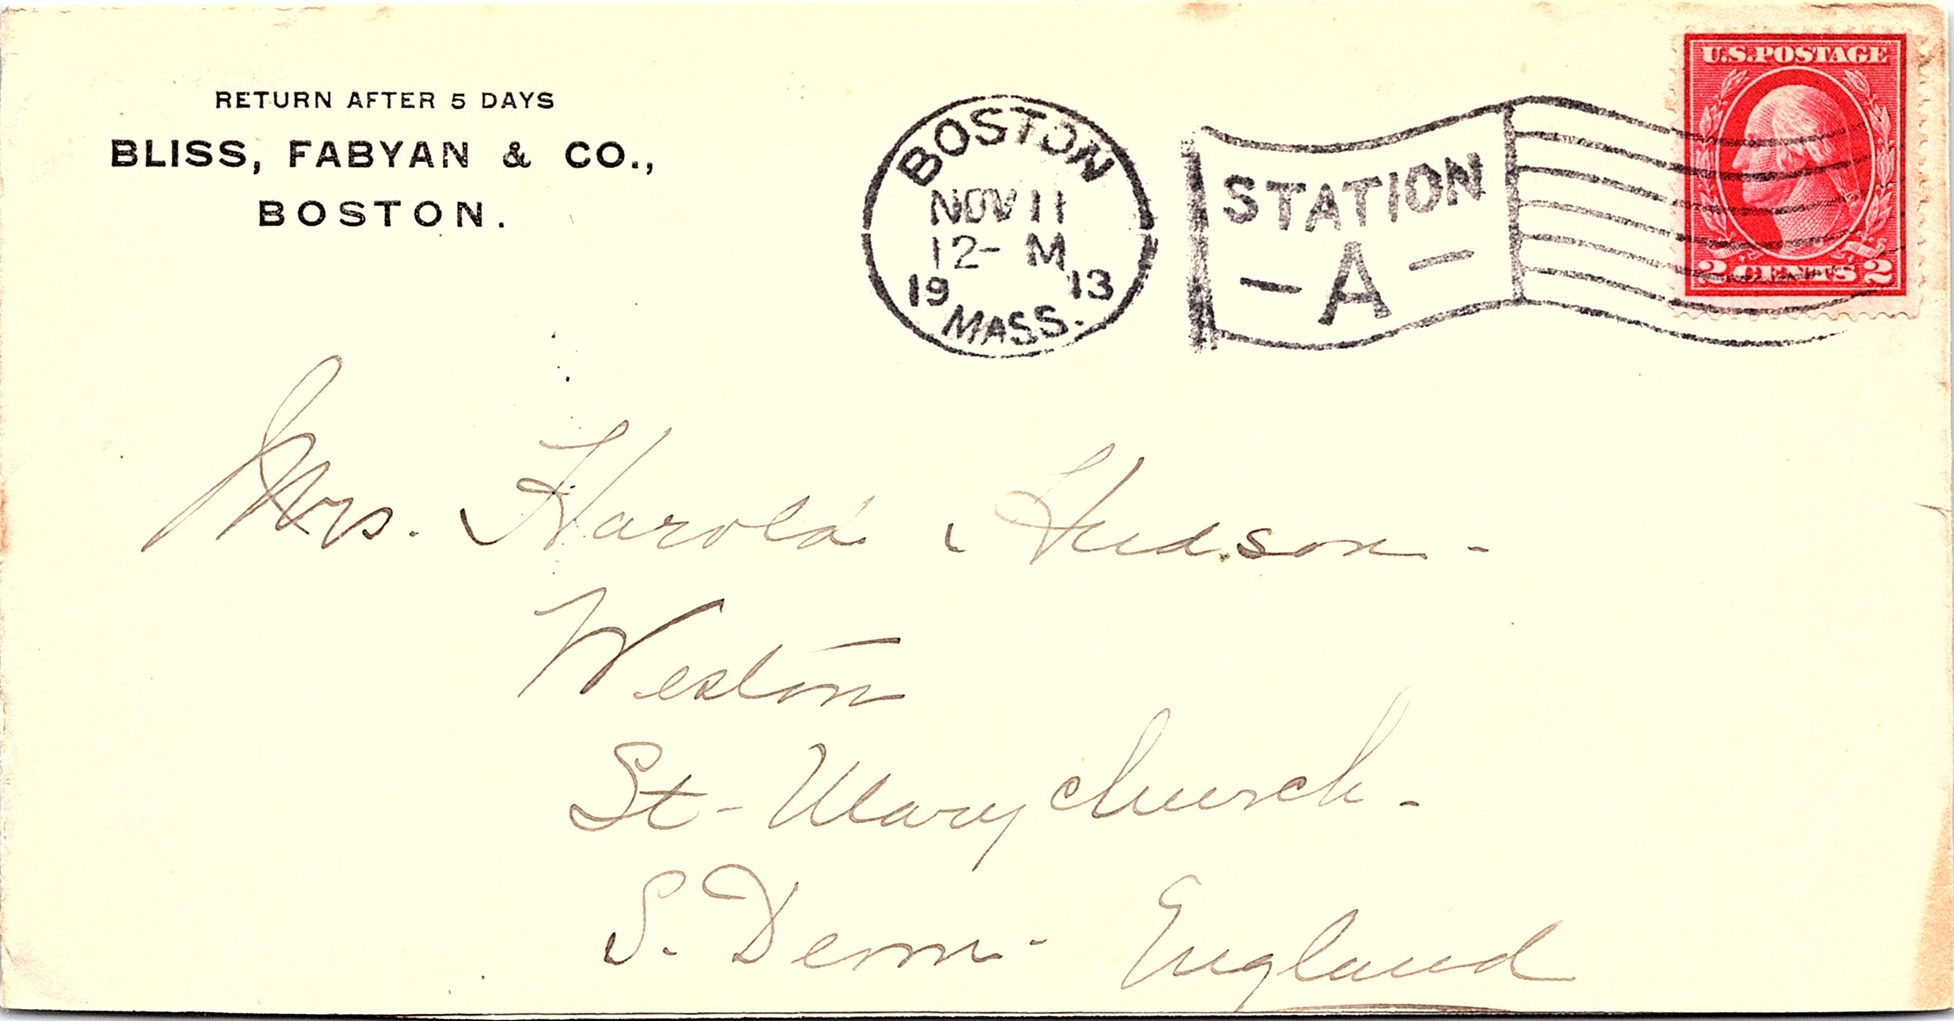 RETURN AFTER 5 DAYS
BLISS, FABYAN & CO.,
BOSTON.
BOSTON
NOV 11
12- M
19 13
MASS.
STATION
- A -
U.S. POSTAGE
2 CENTS 2
Mrs. Harold Hudson -
Weston
St- Marychurch -
S. Devon - England